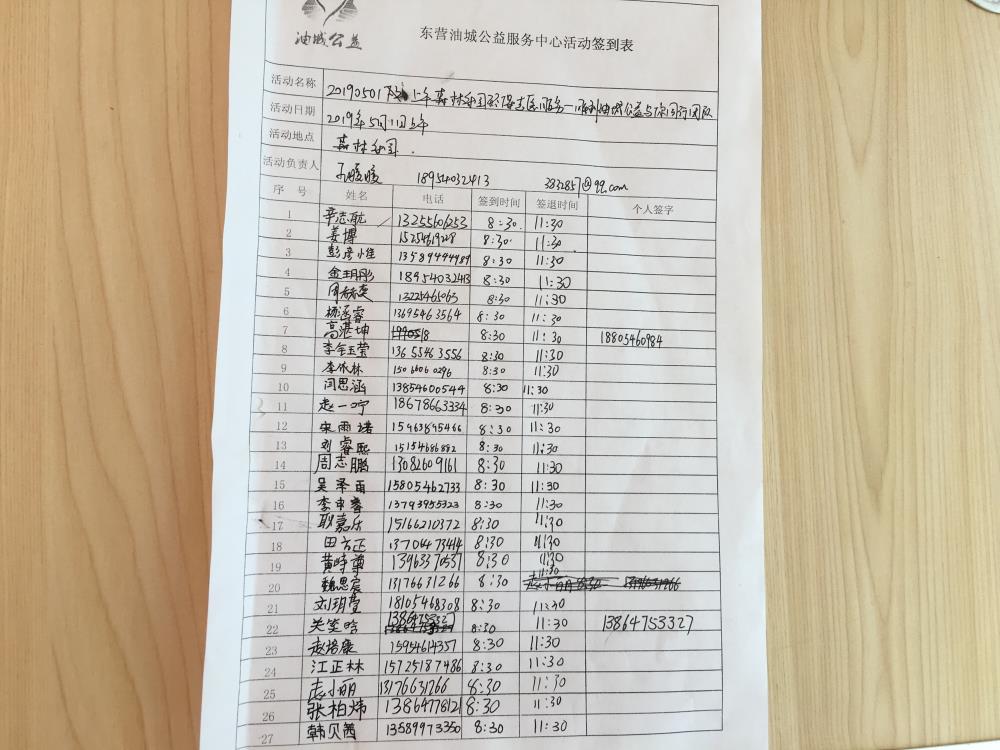 油城公益
东营油城公益服务中心活动签到表
活动名称 20190501 上午森林公园 油城公益与你同行团队
活动日期 2019年5月1日上午
活动地点 森林公园.
活动负责人 暖暖 18954032413 3832857@qq.com
序 号 姓名 电话 签到时间 签退时间 个人签字
1 辛志航 13255606253 8:30. 11:30
2 姜博 15254619228 8:30. 11:30.
3 彭彦小佳 13589444489 8:30 11:30
4 金玥彤 18954032413 8:30 11:30
5 周 13225461063 8:30 11:30
6 杨涵睿 13695463564 8:30 11:30
7 高湛坤 8:30 11:30 18805460984
8 李金玉莹 13655463556 8:30 11:30
9 李依林 15066060296 8:30 11:30
10 闫思涵 13854600544 8:30 11:30
11 赵一宁 18678663334 8:30 11:30
12 宋雨诺 15963895466 8:30 11:30
13 刘睿熙 15154686882 8:30 11:30
14 周志鹏 13082609161 8:30 11:30
15 吴泽雨 15805462733 8:30 11:30
16 李申睿 13793955323 8:30 11:30
17 耿嘉乐 15166210372 8:30 11:30
18 田方正 13706473414 8:30 11:30
19 黄时尊 13963370537 8:30 11:30
20 魏思宸 13176631266 8:30 11:30
21 刘玥萱 18105468308 8:30 11:30
22 关笠晗 13864753327 8:30 11:30 13864753327
23 赵培康 15954614357 8:30 11:30
24 江正林 15725187486 8:30 11:30
25 孟小丽 13176631266 8:30 11:30
26 张柏炜 13864778121 8:30 11:30
27 韩贝茜 13589973350 8:30 11:30